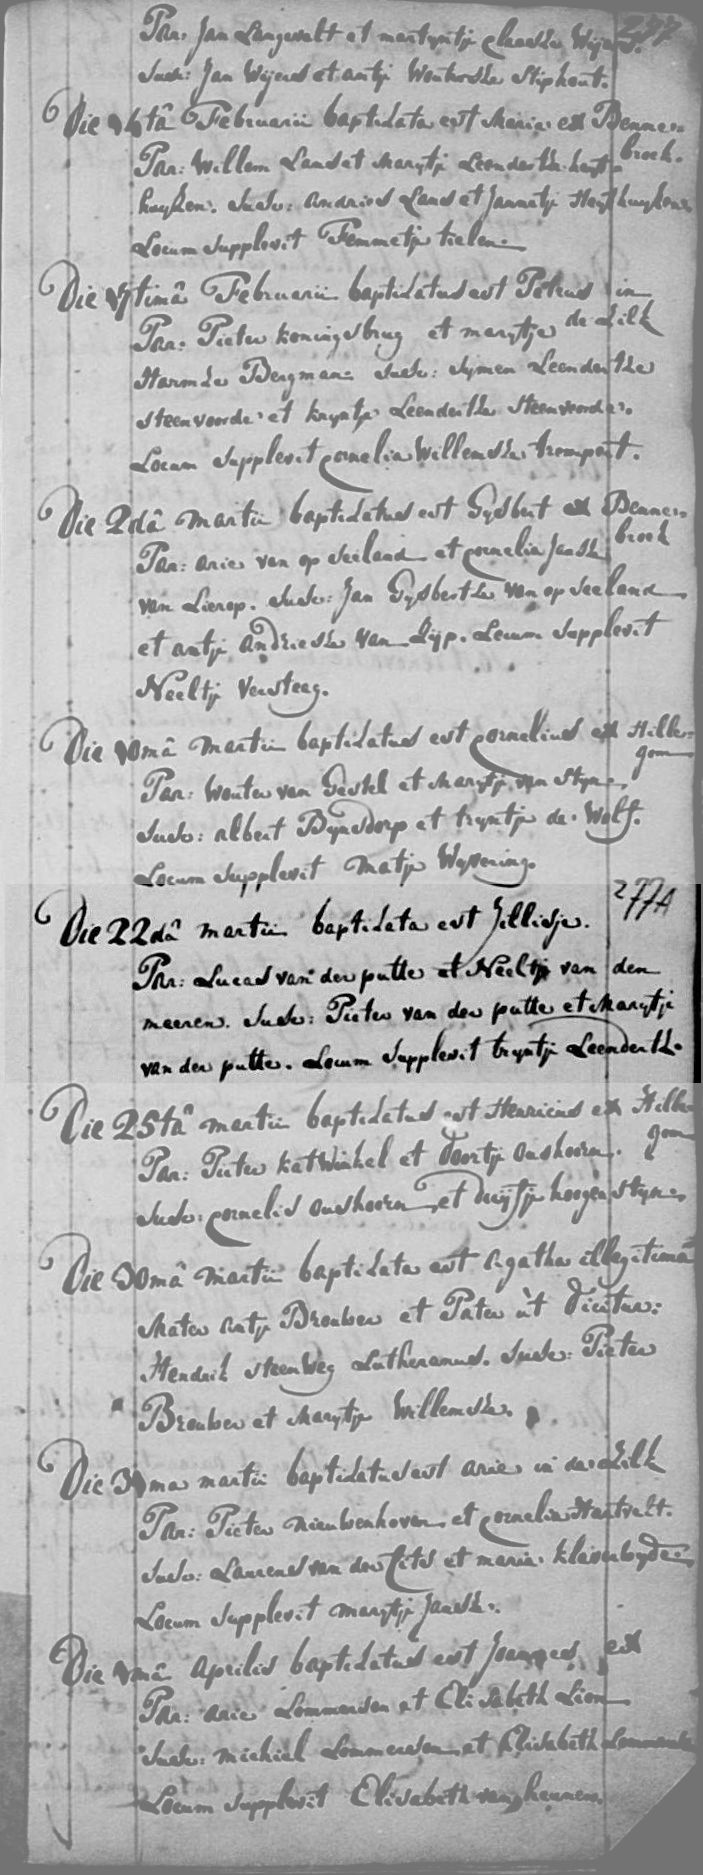 Par: Jan Langevelt et martyntje Claesse Wijers. 277
Susc: Jan Wijers et antje Wouterse Stiphout.
Die 16tâ Februarii baptisata est Maria ex Bennen
broek.
Par: Willem Lans et Marytje Leendertse heyt-
huysen. Susc: Andries Lans et Jannetje Heythuysen.
Locum Supplevit Femmetje tielen.
Die 17timâ Februarii baptisatus est Petrus in
de Zilk
Par: Pieter koningsbrug et marytje
Harmse Bergman. Susc: Symen Leendertse
Steenvoorde et kryntje Leendertse Steenvoorde.
Locum Supplevit Cornelia Willemse trompert.
Die 2dâ Martii baptisatus est Gysbert ex Bennen
broek
Par: Arie van op Seeland et Cornelia Janse
van Lierop. Susc: Jan Gysbertse van op Seeland
et antje Andriesse van Lijp. Locum Supplevit
Neeltje Versteeg.
Die 10mâ Martii baptisatus est Cornelius ex Hille-
gom
Par: Wouter van Gestel et Marytje van Styn.
Susc: Albert Bynsdorp et tryntje de Wolf.
Locum Supplevit Matje Wysening.
Die 22dâ martii baptisata est Jillisje. 277A
Par: Lucas van der putte et Neeltje van den
meeren. Susc: Pieter van der putte et Marytje
van der putte. Locum Supplevit tryntje Leendertse.
Die 25tâ martii baptisatus est Henricus ex Hille
gom
Par: Pieter katwinkel et Doortje Onshoorn.
Susc: Cornelis Onshoorn et Duyfje hoogenstyn.
Die 30mâ Martii baptisata est Agatha illegitima
Mater Antje Brouwer et Pater ut Dicitur:
Hendrik Steenweg Lutheranus. Susc: Pieter
Brouwer et Marytje Willemse.
Die 31ma martii baptisatus est Arie in de Zilk
Par: Pieter Nieuwenhoven et Cornelia Hartvelt.
Susc: Laurens van der Cits et maria
Locum Supplevit Marytje Janse.
Die 1mâ Aprilis baptisatus est Joannes ex
Par: Arie Lommersen et Elisabeth Lion
Susc: Michiel Lommersen et Elisabeth Lommerse
Locum Supplevit Elisabeth van